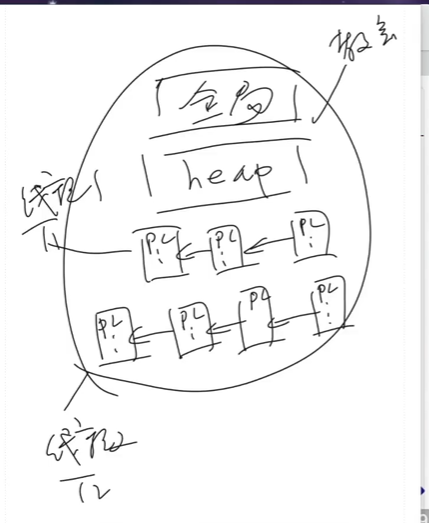 全局
heap
线程1
T1
PC PC PC
PC PC PC PC
线程2
T2